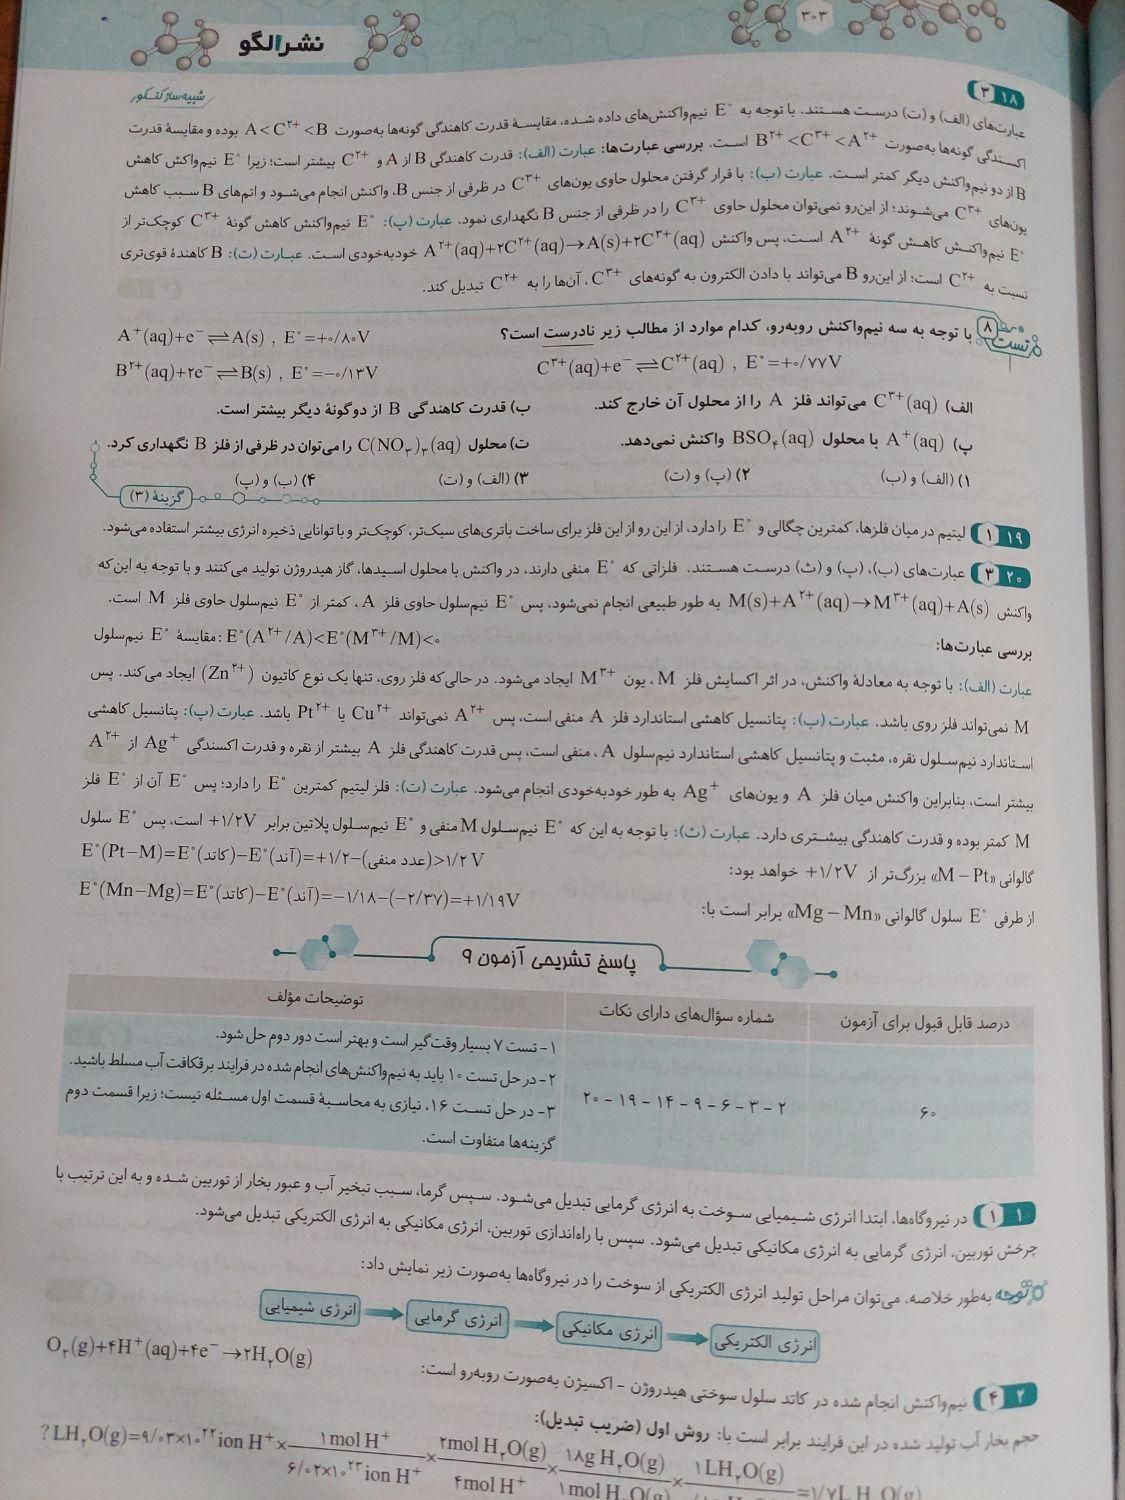 ۳۰۳
نشرالگو
شبیه‌ساز کنکور
۱۸ ۳
عبارت‌های (الف) و (ت) درست هستند. با توجه به E° نیم‌واکنش‌های داده شده، مقایسهٔ قدرت کاهندگی گونه‌ها به‌صورت A<C²⁺<B بوده و مقایسهٔ قدرت
اکسندگی گونه‌ها به‌صورت B²⁺<C³⁺<A²⁺ است. بررسی عبارت‌ها: عبارت (الف): قدرت کاهندگی B از A و C²⁺ بیشتر است؛ زیرا E° نیم‌واکنش کاهش
B از دو نیم‌واکنش دیگر کمتر است. عبارت (ب): با قرار گرفتن محلول حاوی یون‌های C³⁺ در ظرفی از جنس B، واکنش انجام می‌شود و اتم‌های B سبب کاهش
یون‌های C³⁺ می‌شوند؛ از این‌رو نمی‌توان محلول حاوی C³⁺ را در ظرفی از جنس B نگهداری نمود. عبارت (پ): E° نیم‌واکنش کاهش گونهٔ C³⁺ کوچک‌تر از
E° نیم‌واکنش کاهش گونهٔ A²⁺ است، پس واکنش A²⁺(aq)+۲C²⁺(aq)→A(s)+۲C³⁺(aq) خودبه‌خودی است. عبارت (ت): B کاهندهٔ قوی‌تری
نسبت به C²⁺ است؛ از این‌رو B می‌تواند با دادن الکترون به گونه‌های C³⁺، آن‌ها را به C²⁺ تبدیل کند.
تست ۸ با توجه به سه نیم‌واکنش روبه‌رو، کدام موارد از مطالب زیر نادرست است؟ A⁺(aq)+e⁻⇌A(s) , E°=+۰/۸۰V
C³⁺(aq)+e⁻⇌C²⁺(aq) , E°=+۰/۷۷V B²⁺(aq)+۲e⁻⇌B(s) , E°=−۰/۱۳V
الف) C³⁺(aq) می‌تواند فلز A را از محلول آن خارج کند. ب) قدرت کاهندگی B از دوگونهٔ دیگر بیشتر است.
پ) A⁺(aq) با محلول BSO₄(aq) واکنش نمی‌دهد. ت) محلول C(NO₃)₃(aq) را می‌توان در ظرفی از فلز B نگهداری کرد.
۱) (الف) و (ب) ۲) (پ) و (ت) ۳) (الف) و (ت) ۴) (ب) و (پ)
گزینهٔ (۳)
۱۹ ۱ لیتیم در میان فلزها، کمترین چگالی و E° را دارد، از این رو از این فلز برای ساخت باتری‌های سبک‌تر، کوچک‌تر و با توانایی ذخیره انرژی بیشتر استفاده می‌شود.
۲۰ ۳ عبارت‌های (ب)، (پ) و (ث) درست هستند. فلزاتی که E° منفی دارند، در واکنش با محلول اسیدها، گاز هیدروژن تولید می‌کنند و با توجه به این‌که
واکنش M(s)+A²⁺(aq)→M³⁺(aq)+A(s) به طور طبیعی انجام نمی‌شود، پس E° نیم‌سلول حاوی فلز A، کمتر از E° نیم‌سلول حاوی فلز M است.
مقایسهٔ E° نیم‌سلول: E°(A²⁺/A)<E°(M³⁺/M)<۰
بررسی عبارت‌ها:
عبارت (الف): با توجه به معادلهٔ واکنش، در اثر اکسایش فلز M، یون M³⁺ ایجاد می‌شود. در حالی‌که فلز روی، تنها یک نوع کاتیون (Zn²⁺) ایجاد می‌کند. پس
M نمی‌تواند فلز روی باشد. عبارت (ب): پتانسیل کاهشی استاندارد فلز A منفی است، پس A²⁺ نمی‌تواند Cu²⁺ یا Pt²⁺ باشد. عبارت (پ): پتانسیل کاهشی
استاندارد نیم‌سلول نقره، مثبت و پتانسیل کاهشی استاندارد نیم‌سلول A، منفی است، پس قدرت کاهندگی فلز A بیشتر از نقره و قدرت اکسندگی Ag⁺ از A²⁺
بیشتر است، بنابراین واکنش میان فلز A و یون‌های Ag⁺ به طور خودبه‌خودی انجام می‌شود. عبارت (ت): فلز لیتیم کمترین E° را دارد؛ پس E° آن از E° فلز
M کمتر بوده و قدرت کاهندگی بیشتری دارد. عبارت (ث): با توجه به این که E° نیم‌سلول M منفی و E° نیم‌سلول پلاتین برابر +۱/۲V است، پس E° سلول
گالوانی «M – Pt» بزرگ‌تر از +۱/۲V خواهد بود: E°(Pt−M)=E°(کاتد)−E°(آند)=+۱/۲−(عدد منفی)>۱/۲ V
از طرفی E° سلول گالوانی «Mg – Mn» برابر است با: E°(Mn−Mg)=E°(کاتد)−E°(آند)=−۱/۱۸−(−۲/۳۷)=+۱/۱۹V
پاسخ تشریحی آزمون ۹
درصد قابل قبول برای آزمون شماره سؤال‌های دارای نکات توضیحات مؤلف
۶۰
۲ – ۳ – ۶ – ۹ – ۱۴ – ۱۹ – ۲۰
۱- تست ۷ بسیار وقت‌گیر است و بهتر است دور دوم حل شود.
۲- در حل تست ۱۰ باید به نیم‌واکنش‌های انجام شده در فرایند برقکافت آب مسلط باشید.
۳- در حل تست ۱۶، نیازی به محاسبهٔ قسمت اول مسئله نیست؛ زیرا قسمت دوم
گزینه‌ها متفاوت است.
۱ ۱ در نیروگاه‌ها، ابتدا انرژی شیمیایی سوخت به انرژی گرمایی تبدیل می‌شود. سپس گرما، سبب تبخیر آب و عبور بخار از توربین شده و به این ترتیب با
چرخش توربین، انرژی گرمایی به انرژی مکانیکی تبدیل می‌شود. سپس با راه‌اندازی توربین، انرژی مکانیکی به انرژی الکتریکی تبدیل می‌شود.
توجه به‌طور خلاصه، می‌توان مراحل تولید انرژی الکتریکی از سوخت را در نیروگاه‌ها به‌صورت زیر نمایش داد:
انرژی شیمیایی → انرژی گرمایی → انرژی مکانیکی → انرژی الکتریکی
۲ ۴ نیم‌واکنش انجام شده در کاتد سلول سوختی هیدروژن – اکسیژن به‌صورت روبه‌رو است: O₂(g)+۴H⁺(aq)+۴e⁻→۲H₂O(g)
حجم بخار آب تولید شده در این فرایند برابر است با: روش اول (ضریب تبدیل):
? LH₂O(g)=۹/۰۳×۱۰²² ion H⁺× ۱mol H⁺ / ۶/۰۲×۱۰²³ ion H⁺ × ۲mol H₂O(g) / ۴mol H⁺ × ۱۸g H₂O(g) / ۱mol H₂O(g) × ۱LH₂O(g) =۱/۷L H₂O(g)